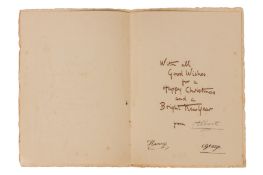 With all
Good Wishes
for a
Happy Christmas
and a
Bright New Year
from Albert